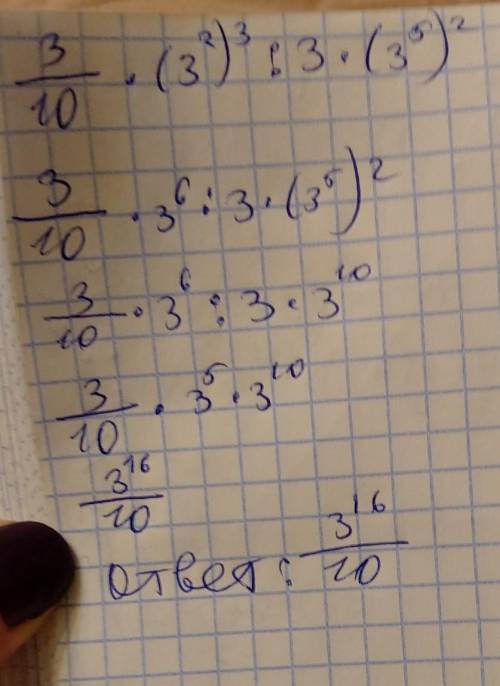 3/10 · (3²)³ : 3 · (3⁵)²
3/10 · 3⁶ : 3 · (3⁵)²
3/10 · 3⁶ : 3 · 3¹⁰
3/10 · 3⁵ · 3¹⁰
3¹⁶/10
ответ: 3¹⁶/10